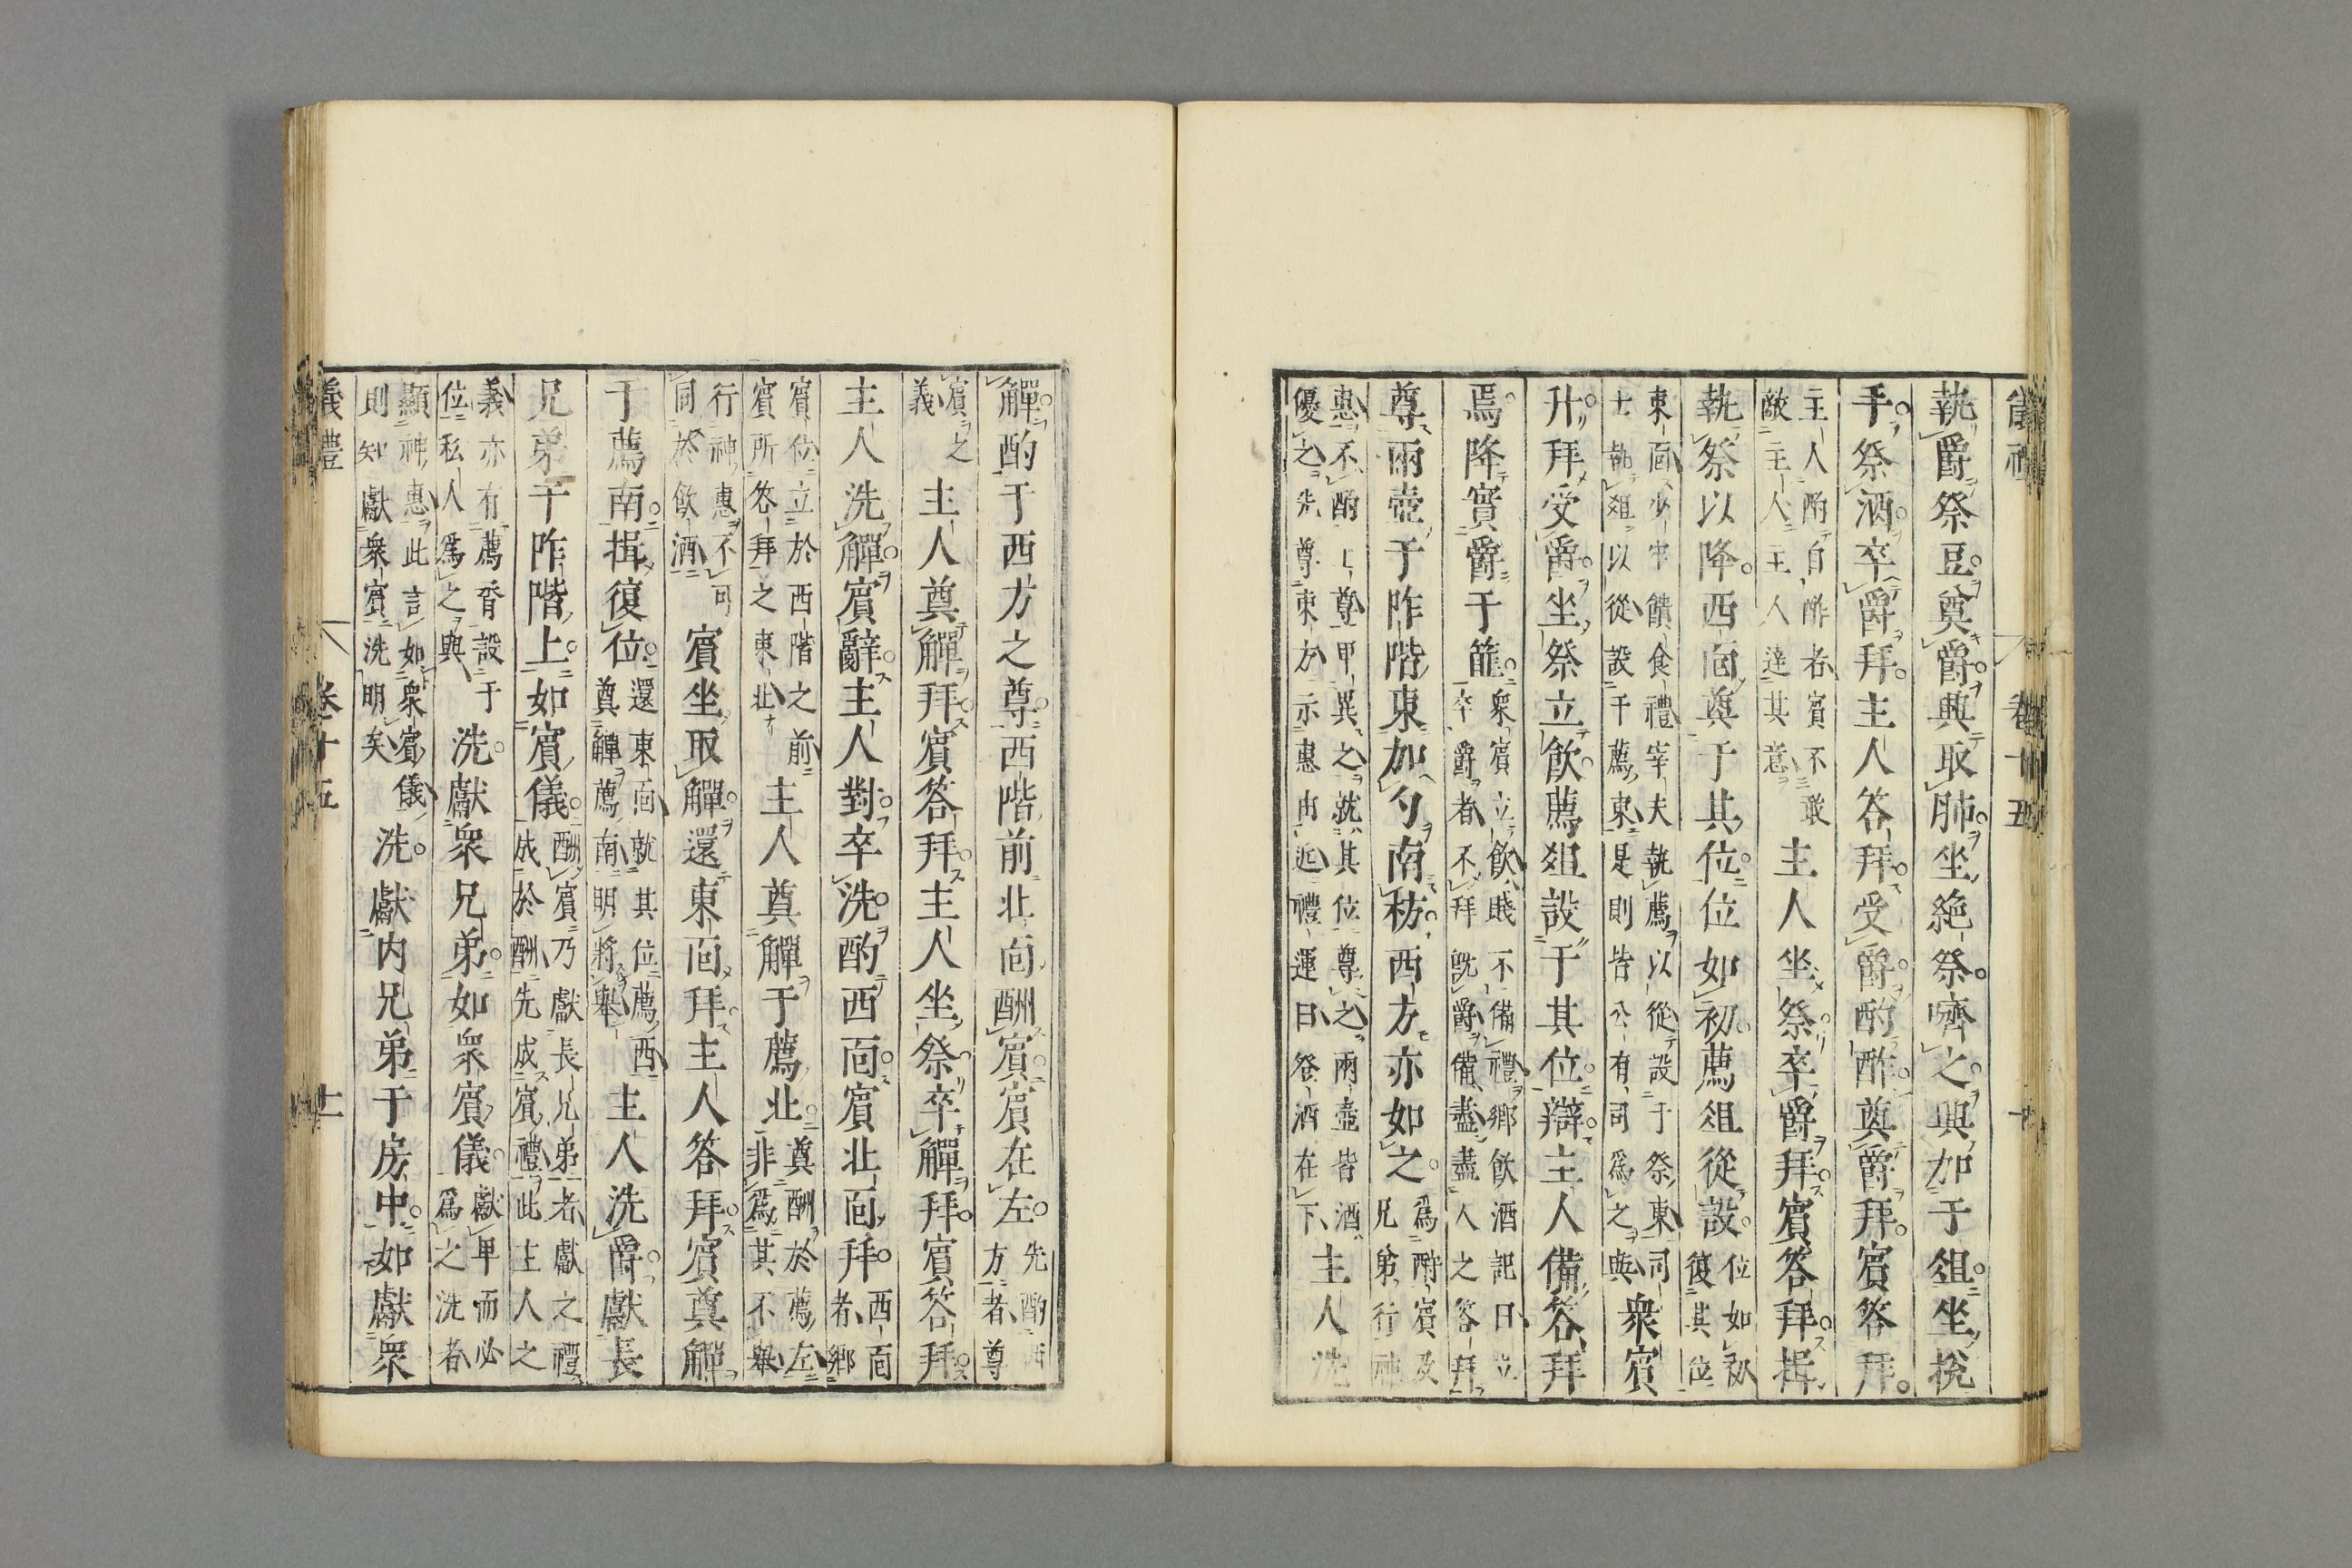 儀禮 卷十五 十
執爵祭豆奠爵興取肺坐絶祭嚌之興加于俎坐挩
手祭酒卒爵拜主人答拜受爵酌酢奠爵拜賓答拜
主人酌自酢者賓不敢敵主人主人達其意主人坐祭卒爵拜賓答拜揖
執祭以降西面奠于其位位如初薦俎從設位如初復其位
東面少牢饋食禮宰夫執薦以從設于祭東司士執俎以從設于薦東是則皆公有司爲之與衆賓
升拜受爵坐祭立飮薦俎設于其位辯主人備答拜
焉降實爵于篚衆賓立飮賤不備禮鄉飮酒記曰立卒爵者不拜既爵備盡盡人之答拜
尊兩壺于阼階東加勺南枋西方亦如之爲酬賓及兄弟行神
惠不酌上尊卑異之就其位尊之兩壺皆酒優之先尊東方示惠由近禮運曰澄酒在下主人洗
觶酌于西方之尊西階前北面酬賓賓在左先酌西方者尊
賓之義主人奠觶拜賓答拜主人坐祭卒觶拜賓答拜
主人洗觶賓辭主人對卒洗酌西面賓北面拜西面者鄉
賓位立於西階之前賓所答拜之東北主人奠觶于薦北奠酬於薦左非爲其不舉
行神惠不可同於飮酒賓坐取觶還東面拜主人答拜賓奠觶
于薦南揖復位還東面就其位薦西奠觶薦南明將舉主人洗爵獻長
兄弟于阼階上如賓儀酬賓乃獻長兄弟者獻之禮成於酬先成賓禮此主人之
義亦有薦脀設于位私人爲之與洗獻衆兄弟如衆賓儀獻卑而必爲之洗者
顯神惠此言如衆賓儀則知獻衆賓洗明矣洗獻内兄弟于房中如獻衆
義禮 卷十五 十一